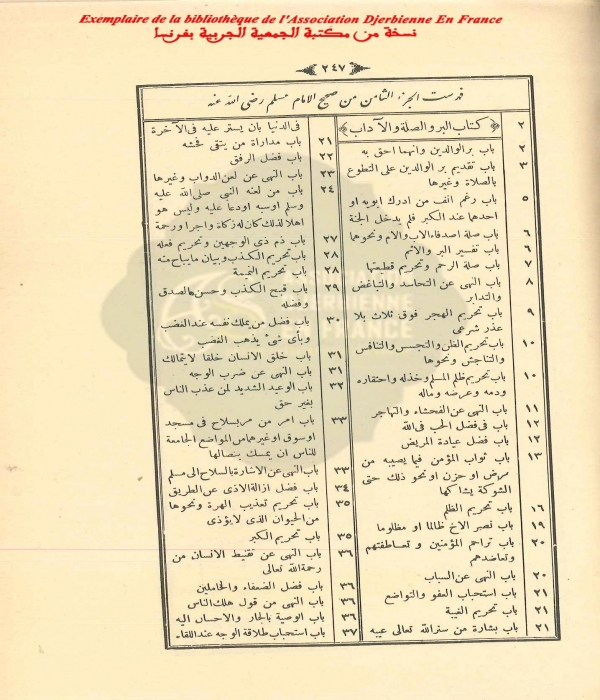 Exemplaire de la bibliothèque de l'Association Djerbienne En France
نسخة من مكتبة الجمعية الجربية بفرنسا
٢٤٧
فهرست الجزء الثامن من صحيح الامام مسلم رضى الله عنه
٢ ﴿كتاب البر والصلة والآداب﴾
٢ باب بر الوالدين وانهما احق به
٣ باب تقديم بر الوالدين على التطوع
بالصلاة وغيرها
٥ باب رغم انف من ادرك ابويه او
احدهما عند الكبر فلم يدخل الجنة
٦ باب صلة اصدقاء الاب والام ونحوهما
٦ باب تفسير البر والاثم
٧ باب صلة الرحم وتحريم قطيعتها
٨ باب النهى عن التحاسد والتباغض
والتدابر
٩ باب تحريم الهجر فوق ثلاث بلا
عذر شرعى
١٠ باب تحريم الظن والتجسس والتنافس
والتناجش ونحوها
١٠ باب تحريم ظلم المسلم وخذله واحتقاره
ودمه وعرضه وماله
١١ باب النهى عن الفحشاء والتهاجر
١٢ باب فى فضل الحب فى الله
١٢ باب فضل عيادة المريض
١٣ باب ثواب المؤمن فيما يصيبه من
مرض او حزن او نحو ذلك حتى
الشوكة يشاكها
١٦ باب تحريم الظلم
١٩ باب نصر الاخ ظالما او مظلوما
٢٠ باب تراحم المؤمنين و تعاطفهم
وتعاضدهم
٢٠ باب النهى عن السباب
٢١ باب استحباب العفو والتواضع
٢١ باب تحريم الغيبة
٢١ باب بشارة من ستر الله تعالى عيبه
فى الدنيا بان يستر عليه فى الآخرة
٢١ باب مداراة من يتقى فحشه
٢٢ باب فضل الرفق
٢٣ باب النهى عن لعن الدواب وغيرها
٢٤ باب من لعنه النبى صلى الله عليه
وسلم اوسبه اودعا عليه وليس هو
اهلا لذلك كان له زكاة واجرا ورحمة
٢٧ باب ذم ذى الوجهين وتحريم فعله
٢٨ باب تحريم الكذب وبيان ما يباح منه
٢٨ باب تحريم النميمة
٢٩ باب قبح الكذب وحسن الصدق
وفضله
٣٠ باب فضل من يملك نفسه عند الغضب
وبأى شئ يذهب الغضب
٣١ باب خلق الانسان خلقا لا يتمالك
٣١ باب النهى عن ضرب الوجه
٣٢ باب الوعيد الشديد لمن عذب الناس
بغير حق
٣٣ باب امر من مر بسلاح فى مسجد
او سوق او غيرهما من المواضع الجامعة
للناس ان يمسك بنصالها
٣٣ باب النهى عن الاشارة بالسلاح الى مسلم
٣٤ باب فضل ازالة الاذى عن الطريق
٣٥ باب تحريم تعذيب الهرة ونحوها
من الحيوان الذى لا يؤذى
٣٥ باب تحريم الكبر
٣٦ باب النهى عن تقنيط الانسان من
رحمة الله تعالى
٣٦ باب فضل الضعفاء والخاملين
٣٦ باب النهى من قول هلك الناس
٣٦ باب الوصية بالجار والاحسان اليه
٣٧ باب استحباب طلاقة الوجه عند اللقاء